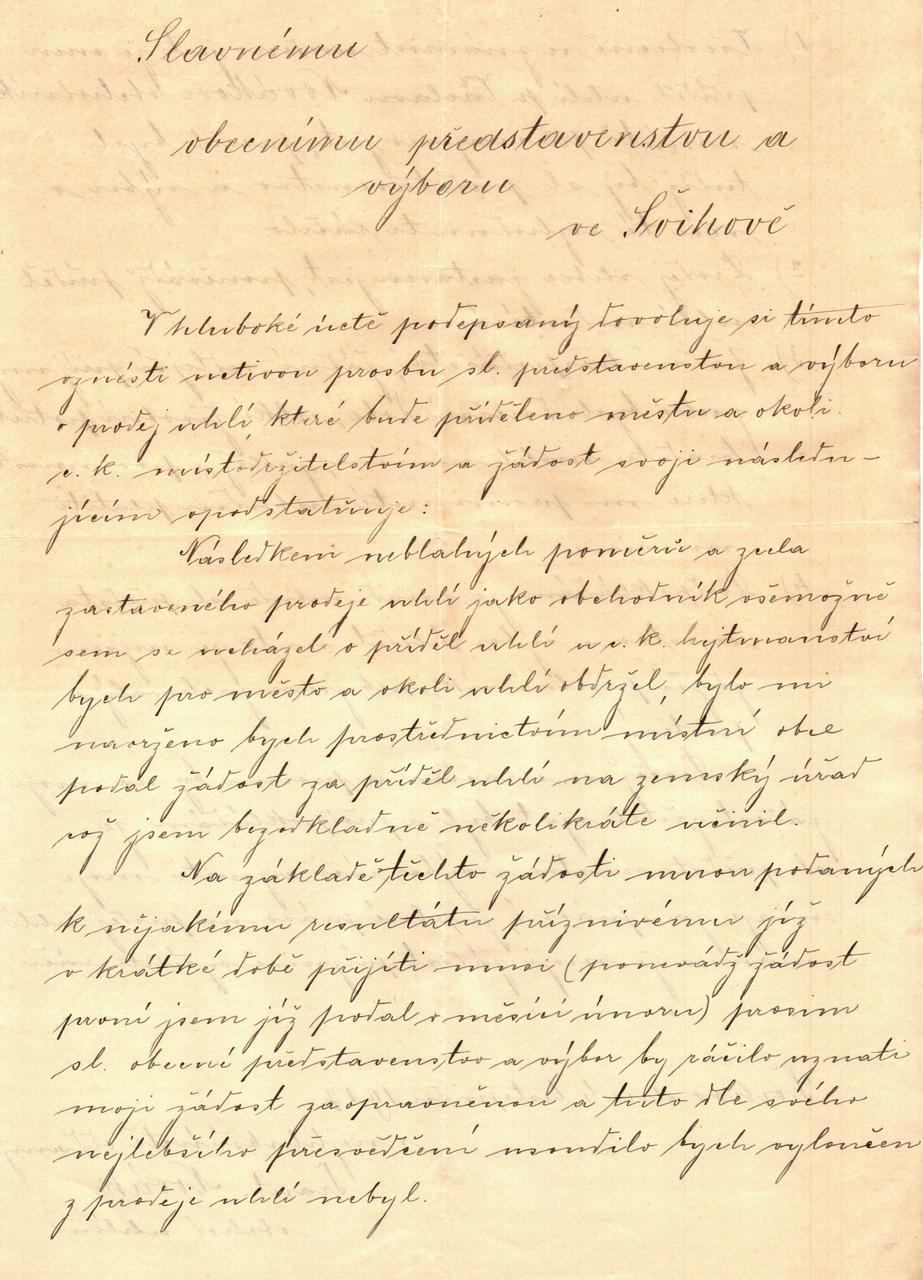 Slavnému
obecnímu představenstvu a
výboru
ve Švihově
V hluboké úctě podepsaný dovoluje si tímto
vznésti uctivou prosbu sl. představenstvu a výboru
o prodej uhlí, které bude přiděleno městu a okolí
c. k. místodržitelstvím a žádost svoji násled-
jícím opodstatňuje:
Následkem neblahých poměrů a zcela
zastaveného prodeje uhlí jako obchodník všemožně
sem se ucházel o příděl uhlí u c. k. hejtmanství
bych pro město a okolí uhlí obdržel, bylo mi
navrženo bych prostřednictvím místní obce
podal žádost za příděl uhlí na zemský úřad
což jsem bezodkladně několikráte učinil.
Na základě těchto žádostí mnou podaných
k nějakému resultátu příznivému již
v krátké době přijíti musí (poněvádž žádost
první jsem již podal v měsíci únoru) prosím
sl. obecní představenstvo a výbor by ráčilo uznati
moji žádost za oprávněnou a tuto dle svého
nejlebšího přesvědčení usoudilo bych vyloučen
z prodeje uhlí nebyl.